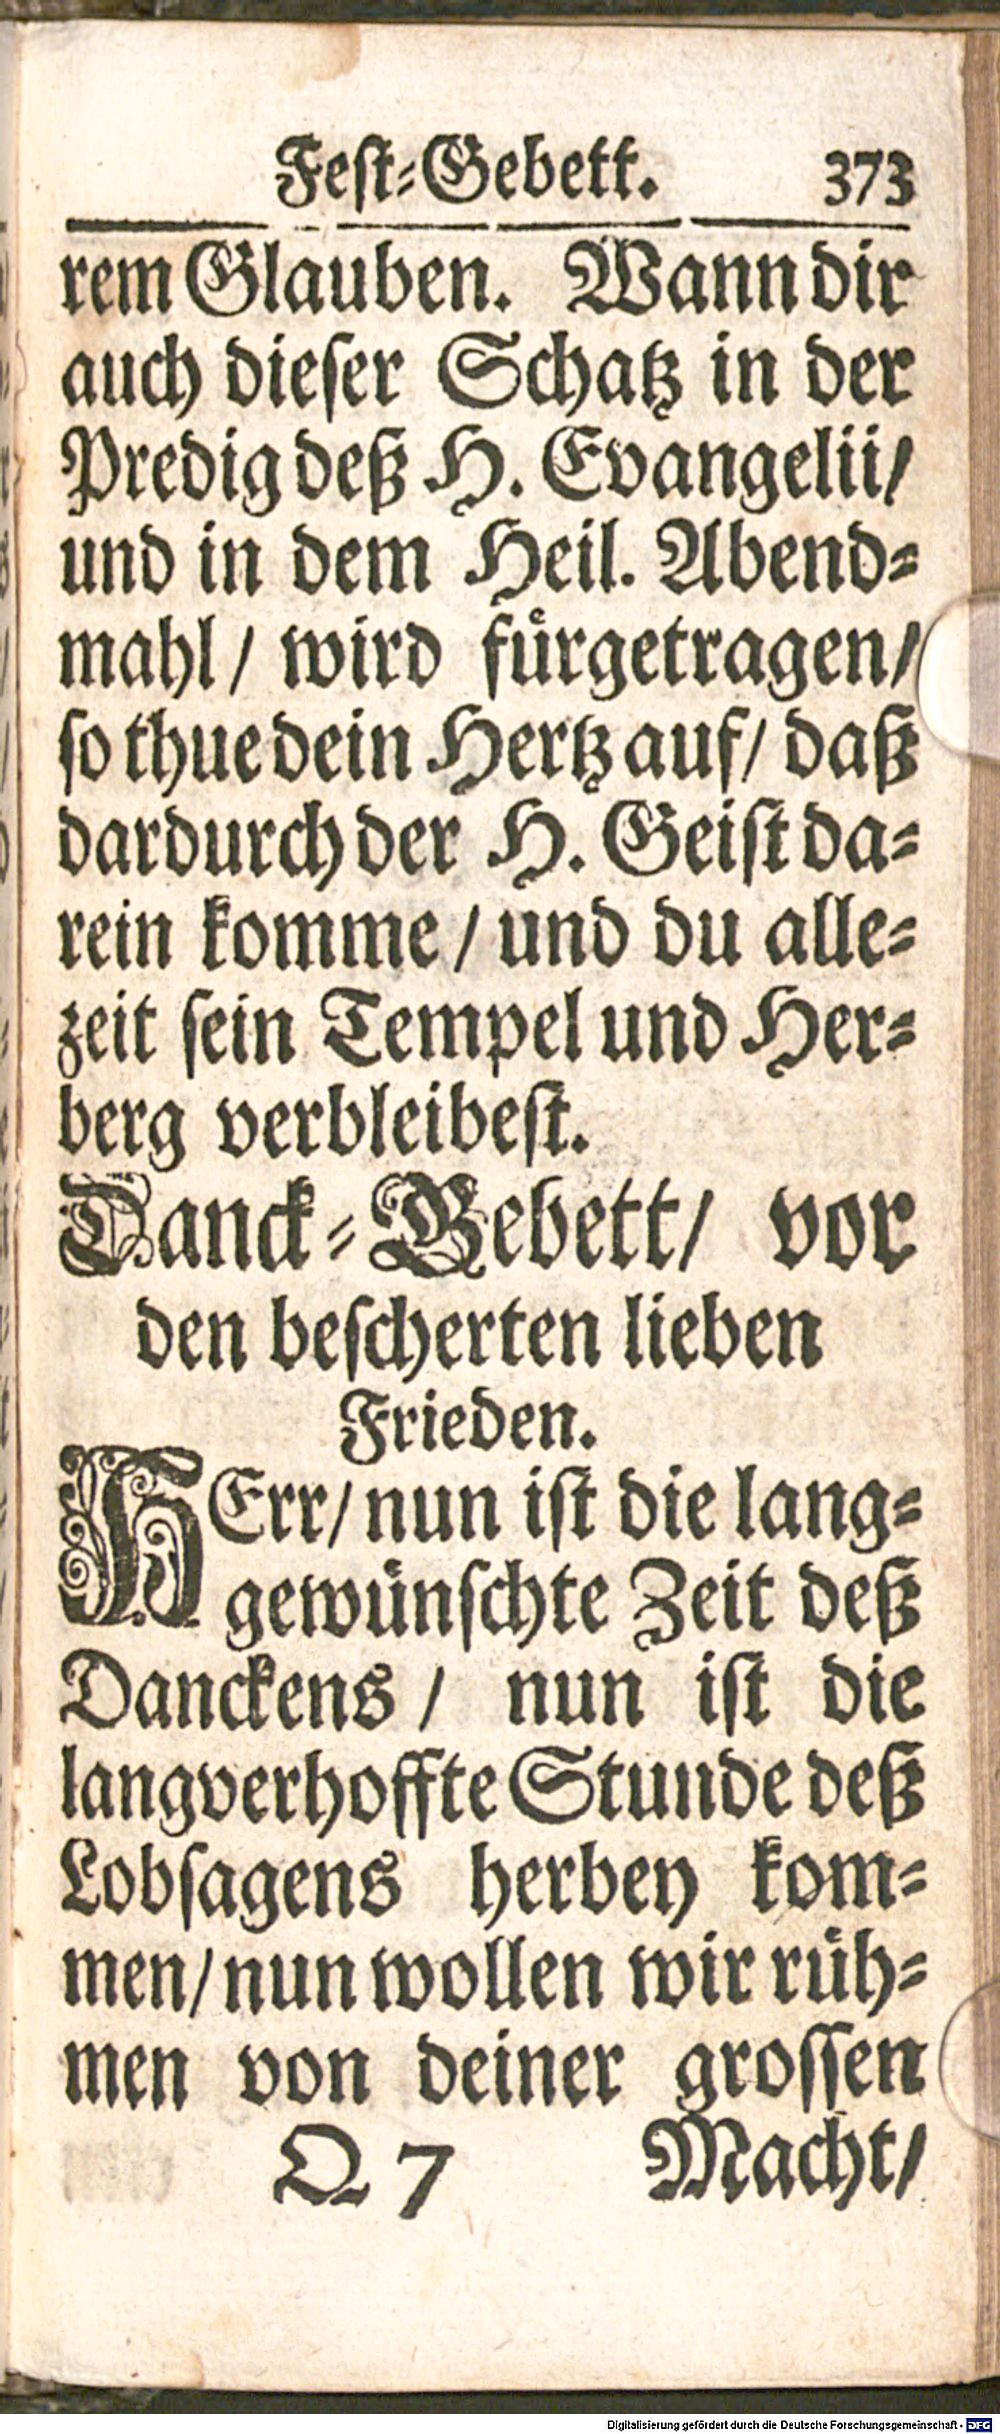 Fest-Gebett. 373
rem Glauben. Wann dir
auch dieser Schatz in der
Predig deß H. Evangelii/
und in dem Heil. Abend-
mahl/ wird fürgetragen/
so thue dein Hertz auf/ daß
dardurch der H. Geist da-
rein komme/ und du alle-
zeit sein Tempel und Her-
berg verbleibest.
Danck-Gebett/ vor
den bescherten lieben
Frieden.
HErr/ nun ist die lang-
gewünschte Zeit deß
Danckens/ nun ist die
langverhoffte Stunde deß
Lobsagens herbey kom-
men/ nun wollen wir rüh-
men von deiner grossen
Q 7 Macht/
Digitalisierung gefördert durch die Deutsche Forschungsgemeinschaft - DFG